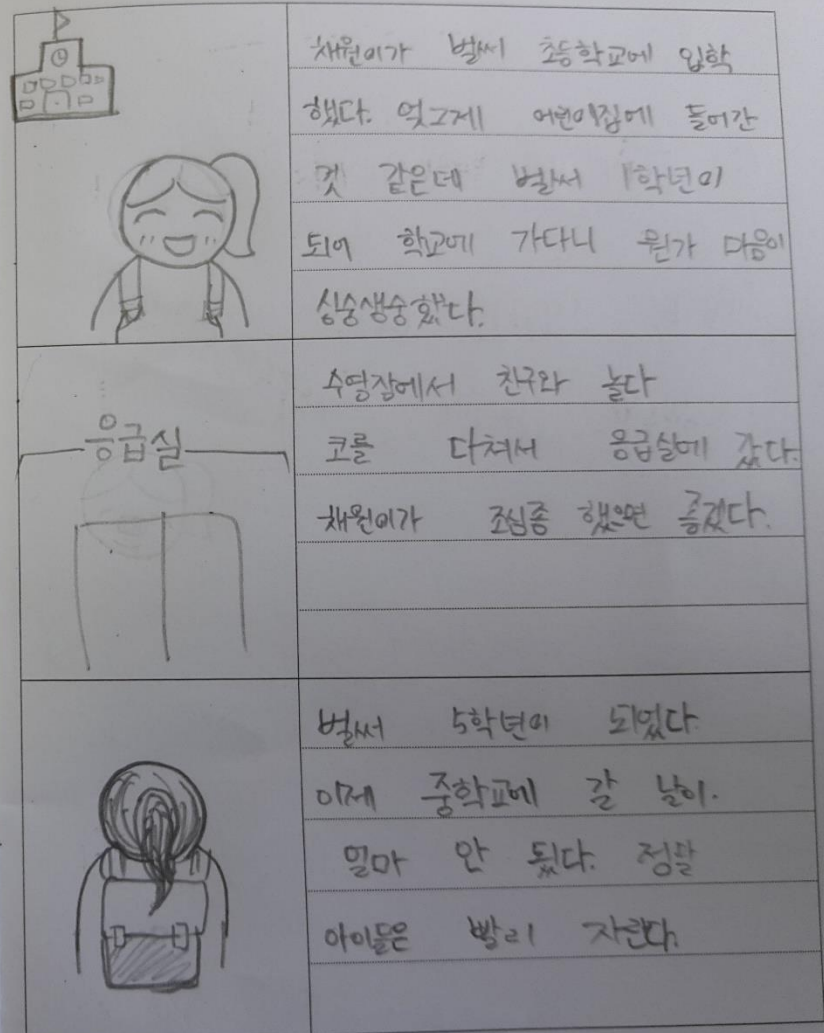 채원이가 벌써 초등학교에 입학
했다. 엊그제 어린이집에 들어간
것 같은데 벌써 1학년이
되어 학교에 가다니 뭔가 마음이
싱숭생숭했다.
수영장에서 친구와 놀다
응급실
코를 다쳐서 응급실에 갔다.
채원이가 조심좀 했으면 좋겠다.
벌써 5학년이 되었다
이제 중학교에 갈 날이.
얼마 안 됬다. 정말
아이들은 빨리 자란다.